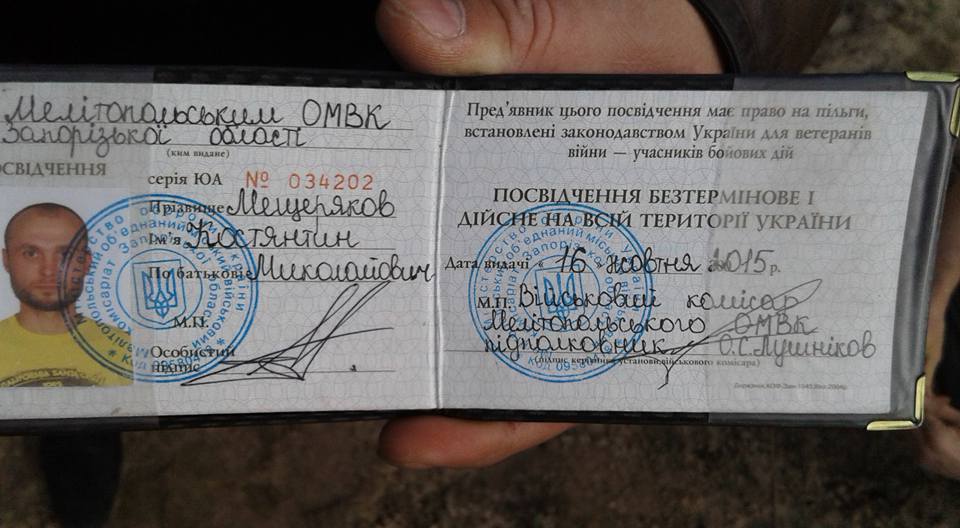 Мелітопольським ОМВК
Запорізької області
(ким видане)
ОСВІДЧЕННЯ
серія ЮА № 034202
Прізвище Мещеряков
Ім'я Костянтин
По батькові Миколайович
М.П.
Особистий
підпис
Пред'явник цього посвідчення має право на пільги,
встановлені законодавством України для ветеранів
війни — учасників бойових дій
ПОСВІДЧЕННЯ БЕЗТЕРМІНОВЕ І
ДІЙСНЕ НА ВСІЙ ТЕРИТОРІЇ УКРАЇНИ
Дата видачі « 16 » жовтня 2015 р.
М.П. Військовий комісар
Мелітопольського ОМВК
підполковник О.С.Лушніков
(підпис керівника установи, військового комісара)